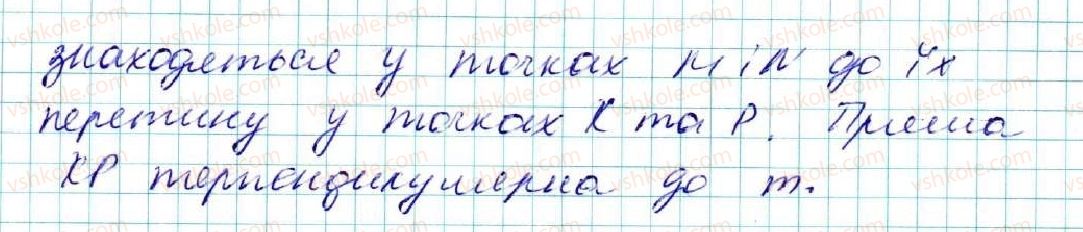 знаходяться у точках M і N до їх
перетину у точках K та P. Пряма
KP перпендикулярна до m.